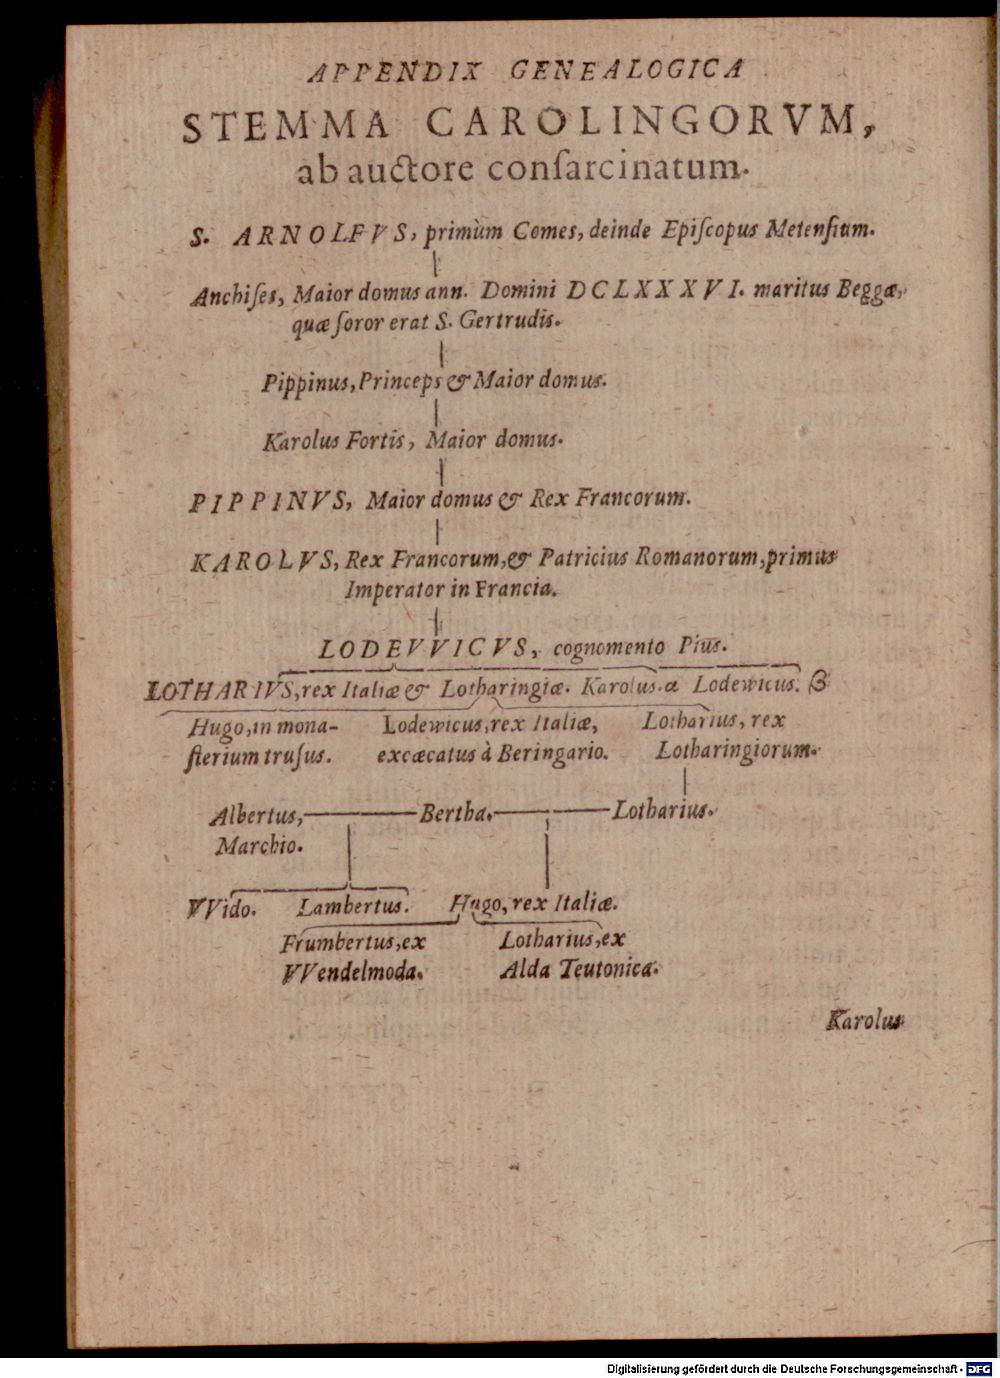 APPENDIX GENEALOGICA
STEMMA CAROLINGORVM,
ab auctore conſarcinatum.
S. ARNOLFVS, primùm Comes, deinde Epiſcopus Metenſium.
Anchiſes, Maior domus ann. Domini DCLXXXVI. maritus Beggæ,
quæ ſoror erat S. Gertrudis.
Pippinus, Princeps & Maior domus.
Karolus Fortis, Maior domus.
PIPPINVS, Maior domus & Rex Francorum.
KAROLVS, Rex Francorum, & Patricius Romanorum, primus
Imperator in Francia.
LODEVVICVS, cognomento Pius.
LOTHARIVS, rex Italiæ & Lotharingiæ. Karolus. α Lodewicus. β
Hugo, in mona- Lodewicus, rex Italiæ, Lotharius, rex
ſterium truſus. excæcatus à Beringario. Lotharingiorum.
Albertus, Bertha. Lotharius.
Marchio.
VVido. Lambertus. Hugo, rex Italiæ.
Frumbertus, ex Lotharius, ex
VVendelmoda. Alda Teutonica.
Karolus
Digitalisierung gefördert durch die Deutsche Forschungsgemeinschaft - DFG